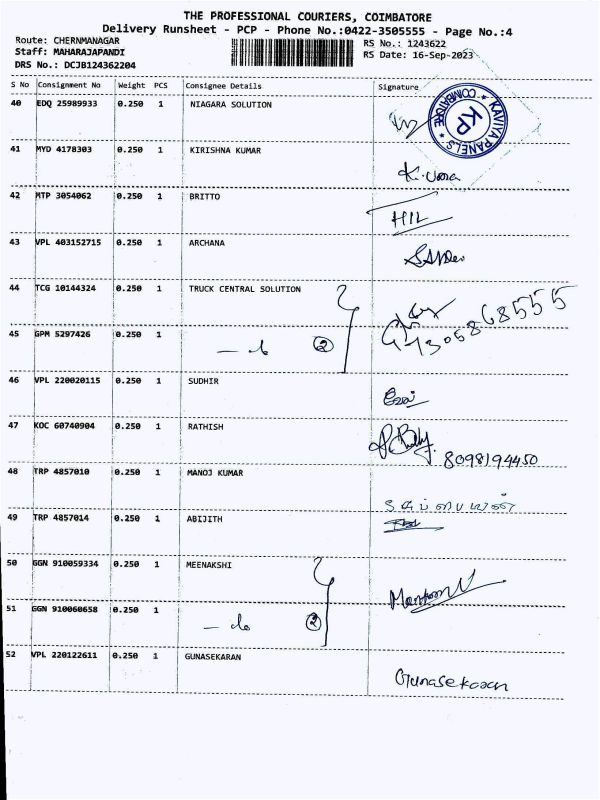 THE PROFESSIONAL COURIERS, COIMBATORE
Delivery Runsheet - PCP - Phone No.:0422-3505555 - Page No.:4
Route: CHERNMANAGAR
RS No.: 1243622
Staff: MAHARAJAPANDI
RS Date: 16-Sep-2023
DRS No.: DCJB124362204
S No Consignment No Weight PCS Consignee Details Signature
40 EDQ 25989933 0.250 1 NIAGARA SOLUTION
KAVIYA PANELS * COIMBATORE * KP
41 MYD 4178303 0.250 1 KIRISHNA KUMAR
K. Uma
42 MTP 3054062 0.250 1 BRITTO
43 VPL 403152715 0.250 1 ARCHANA
44 TCG 10144324 0.250 1 TRUCK CENTRAL SOLUTION
45 GPM 5297426 0.250 1
2
46 VPL 220020115 0.250 1 SUDHIR
47 KOC 60740904 0.250 1 RATHISH
8098194450
48 TRP 4857010 0.250 1 MANOJ KUMAR
49 TRP 4857014 0.250 1 ABIJITH
50 GGN 910059334 0.250 1 MEENAKSHI
51 GGN 910060658 0.250 1
2
52 VPL 220122611 0.250 1 GUNASEKARAN
Gunasekaran